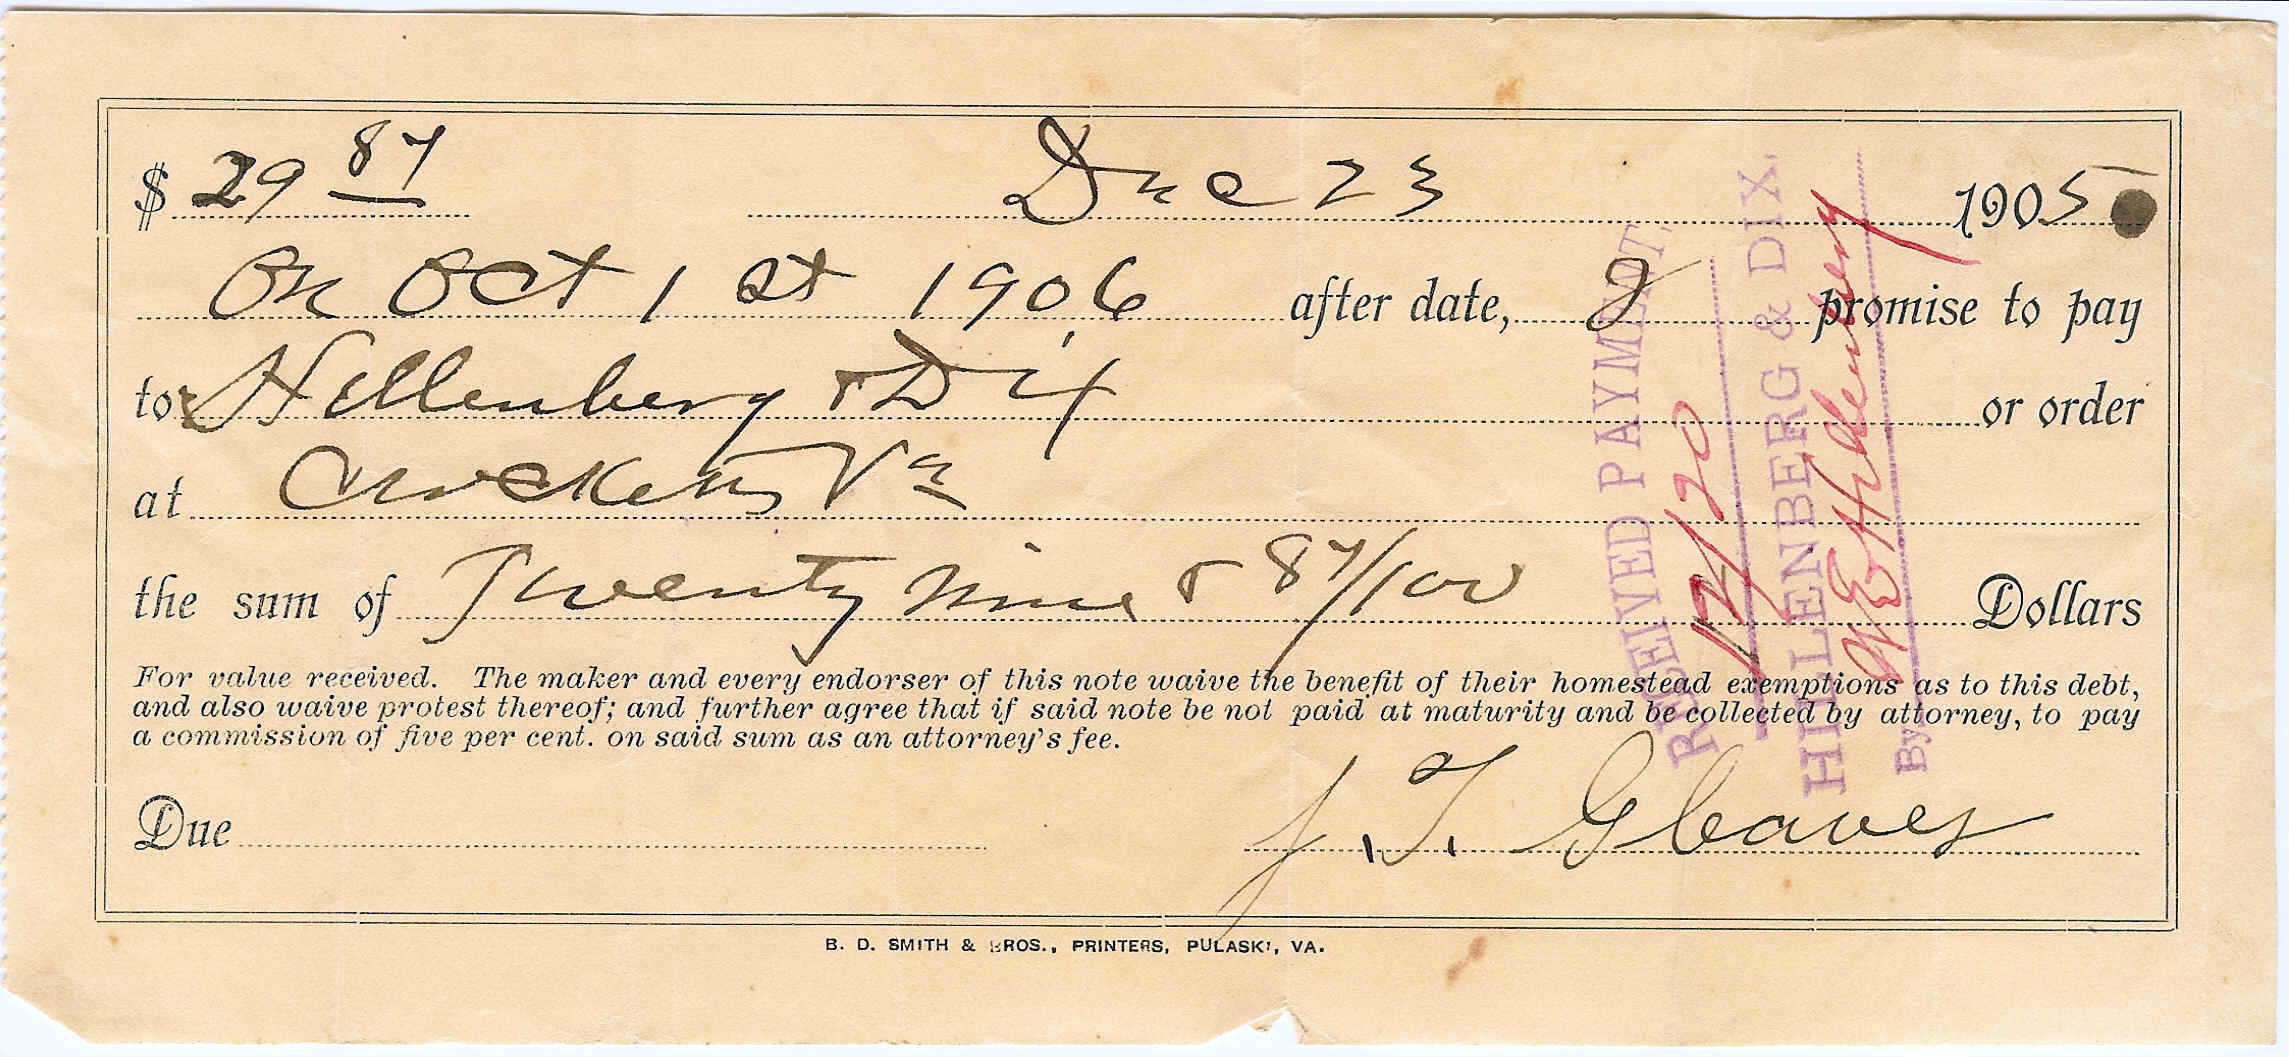 $ 29 87 Dec 23 1905
On Oct 1 st 1906 after date, I promise to pay
to Hillenberg & Dix or order
at Crocketts Va
the sum of Twenty nine & 87/100 Dollars
For value received. The maker and every endorser of this note waive the benefit of their homestead exemptions as to this debt,
and also waive protest thereof; and further agree that if said note be not paid at maturity and be collected by attorney, to pay
a commission of five per cent. on said sum as an attorney's fee.
Due
J. T. Gleaves
B. D. SMITH & BROS., PRINTERS, PULASKI, VA.
RECEIVED PAYMENT,
12/20
HILLENBERG & DIX.
By W E Hillenberg